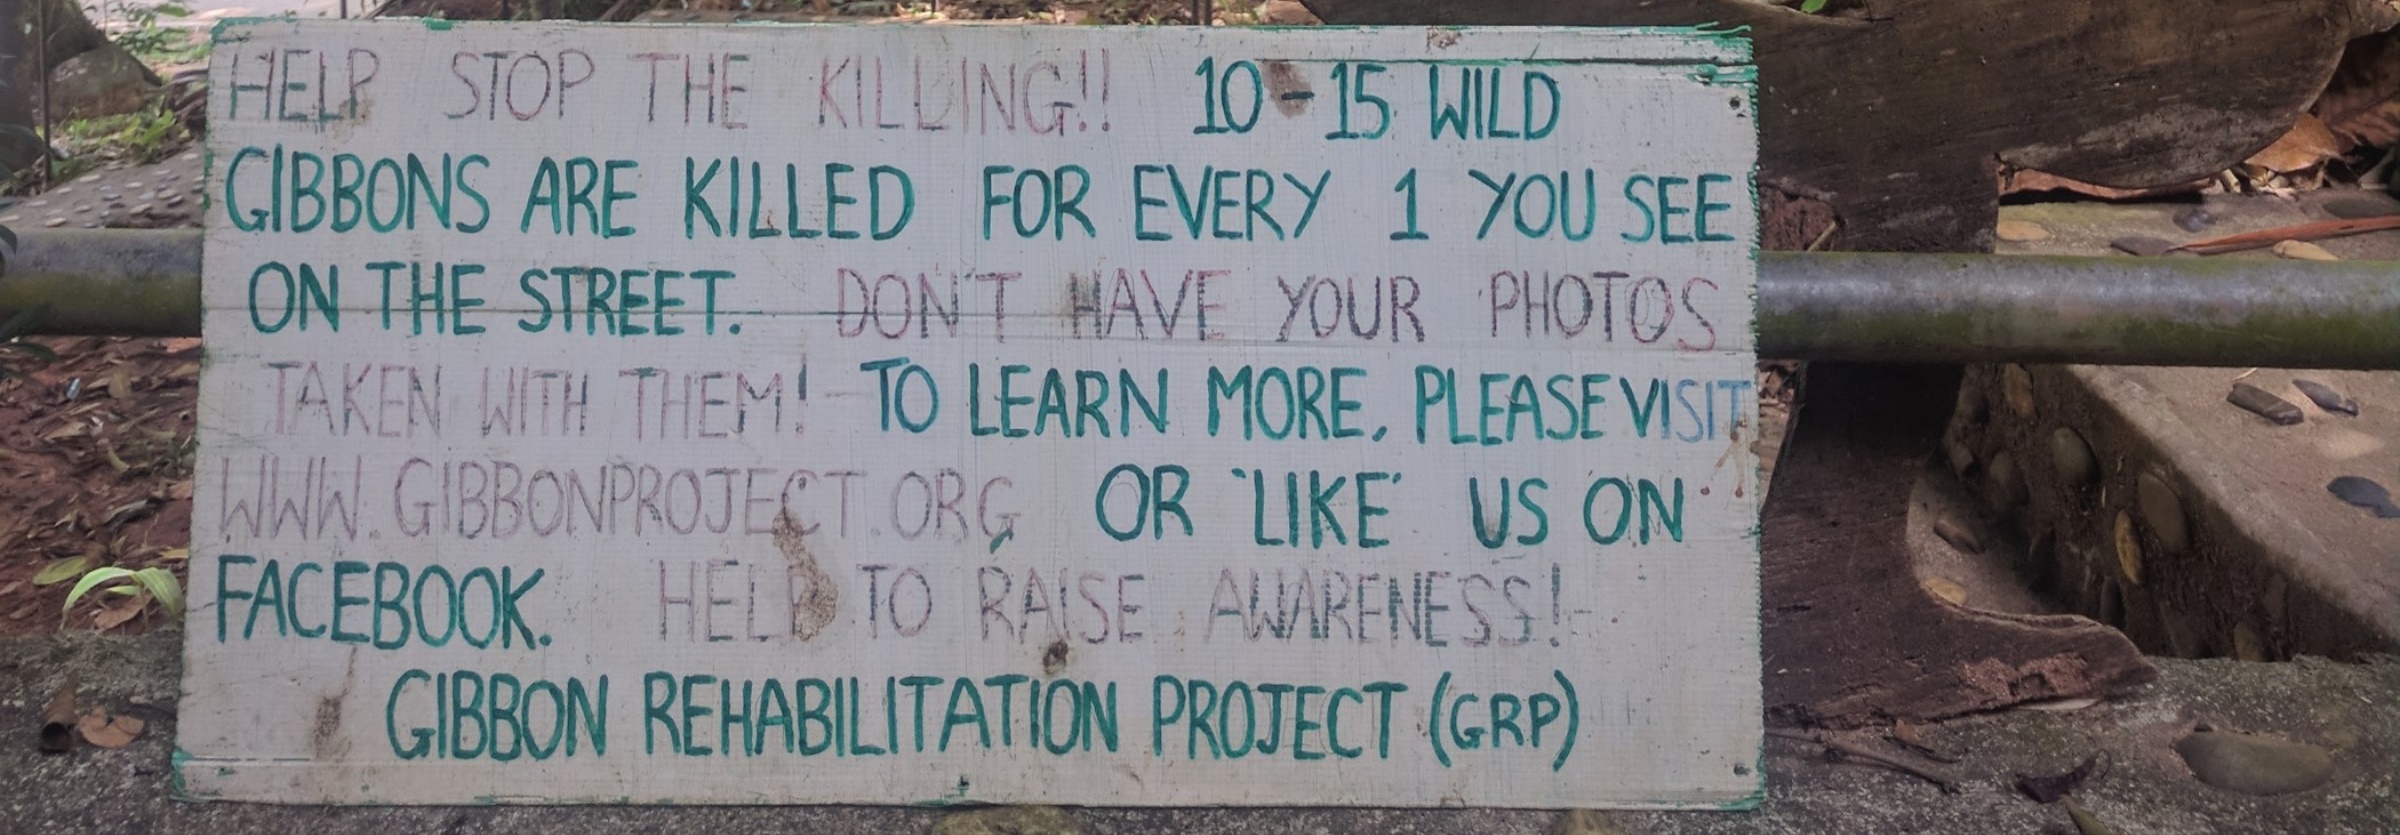 HELP STOP THE KILLING!! 10-15 WILD
GIBBONS ARE KILLED FOR EVERY 1 YOU SEE
ON THE STREET. DON'T HAVE YOUR PHOTOS
TAKEN WITH THEM! TO LEARN MORE, PLEASE VISIT
WWW.GIBBONPROJECT.ORG OR 'LIKE' US ON
FACEBOOK. HELP TO RAISE AWARENESS!
GIBBON REHABILITATION PROJECT (GRP)